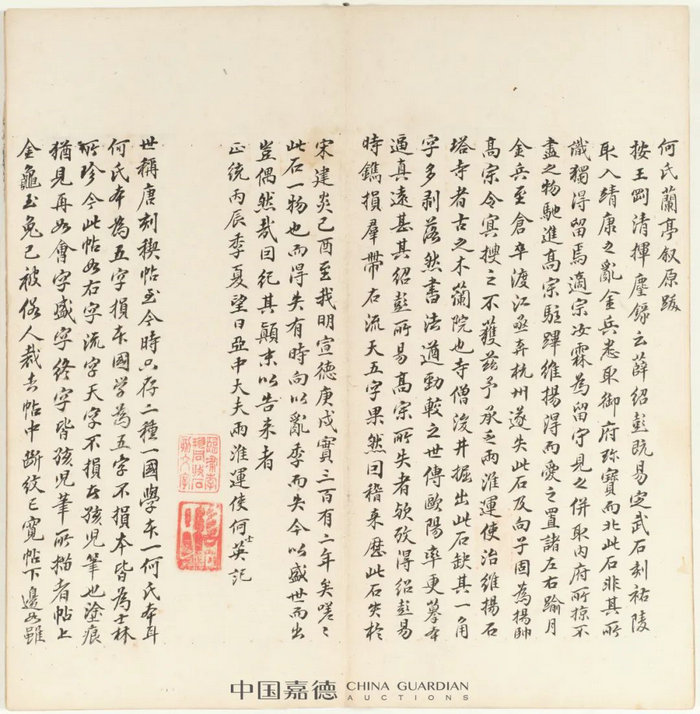 何氏蘭亭叙原跋
按王明清揮麈錄云薛紹彭既易定武石刻祐陵
取入靖康之亂金兵悉取御府珍寶而北此石非其所
識獨得留焉適宗汝霖為留守見之併取内府所掠不
盡之物馳進高宗駐蹕維揚得而愛之置諸左右踰月
金兵至倉卒渡江亟弃杭州遂失此石及向子固為揚帥
高宗令冥搜之不獲茲予承乏兩淮運使治維揚石
塔寺者古之木蘭院也寺僧浚井掘出此石缺其一角
字多剥落然書法遒勁較之世傳歐陽率更摹本
逼真遠甚其紹彭所易高宗所失者歟攷得紹彭易
時鐫損羣帶右流天五字果然曰稽来歷此石失於
宋建炎己酉至我明宣德庚戌實三百有二年矣嗟々
此石一物也而得失有時向以亂季而失今以盛世而出
豈偶然哉因紀其顛末以告来者
正统丙辰季夏望日亞中大夫兩淮運使何士英記
世稱唐刻禊帖至今時只存二種一國學本一何氏本耳
何氏本為五字損本國学為五字不損本皆為士林
所珍今此帖如右字流字天字不損及孩児筆也塗痕
猶見再如會字盛字終字皆孩児筆所描者帖上
金龜玉兔已被俗人裁去帖中断紋已寛帖下邊如雖
中国嘉德 CHINA GUARDIAN
AUCTIONS